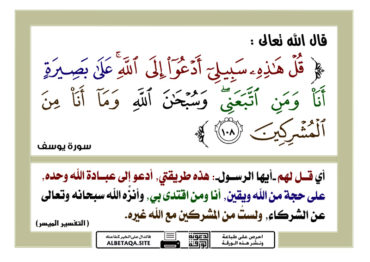 قال الله تعالى :
﴿ قُلْ هَٰذِهِۦ سَبِيلِيٓ أَدْعُوٓا۟ إِلَى ٱللَّهِ ۚ عَلَىٰ بَصِيرَةٍ
أَنَا۠ وَمَنِ ٱتَّبَعَنِى ۖ وَسُبْحَٰنَ ٱللَّهِ وَمَآ أَنَا۠ مِنَ
ٱلْمُشْرِكِينَ ١٠٨ ﴾
سورة يوسف
أي قـل لهم ـ أيها الرسول ـ: هذه طريقتي, أدعو إلى عبـادة الله وحده,
على حجة من الله ويقين, أنا ومن اقتدى بي, وأنزِّه الله سبحانه وتعالى
عن الشركاء, ولست من المشركين مع الله غيره.
( التفسير الميسر )
احرص على طباعة
ونشر هذه الورقة
ALBETAQA.SITE